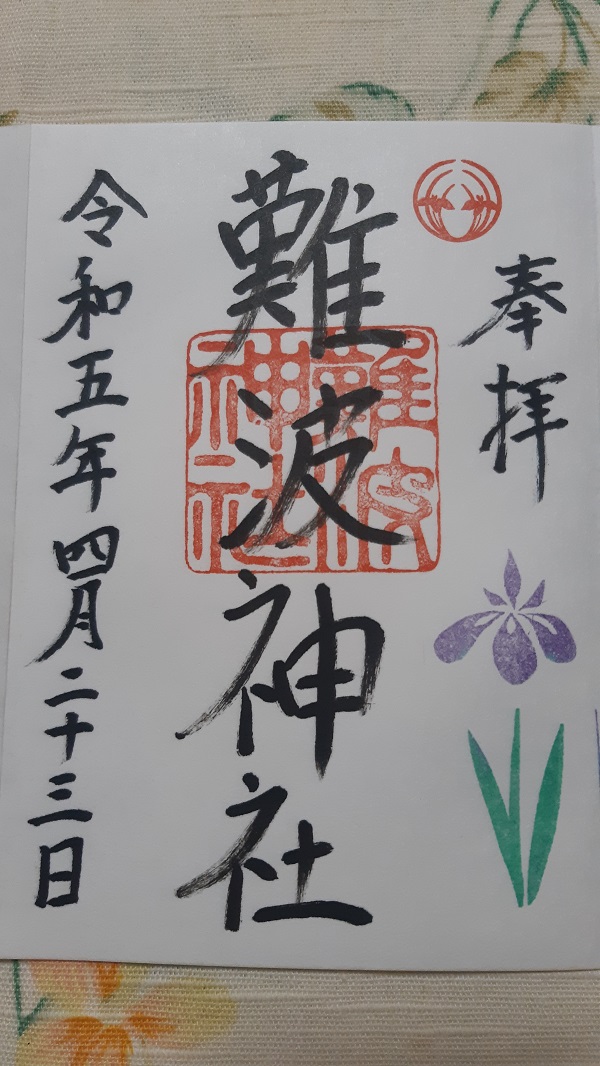 奉拝
難波神社
難波神社
令和五年四月二十三日